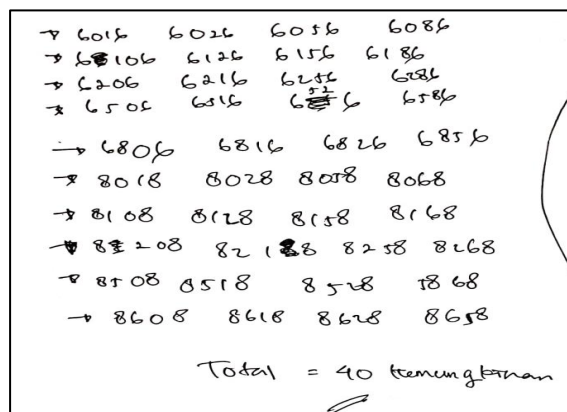 → 6016 6026 6056 6086
→ 6106 6126 6156 6186
→ 6206 6216 6256 6286
→ 6506 6516 6526 6586
→ 6806 6816 6826 6856
→ 8018 8028 8058 8068
→ 8108 8128 8158 8168
→ 8208 8218 8258 8268
→ 8508 8518 8528 5868
→ 8608 8618 8628 8658
Total = 40 kemungkinan